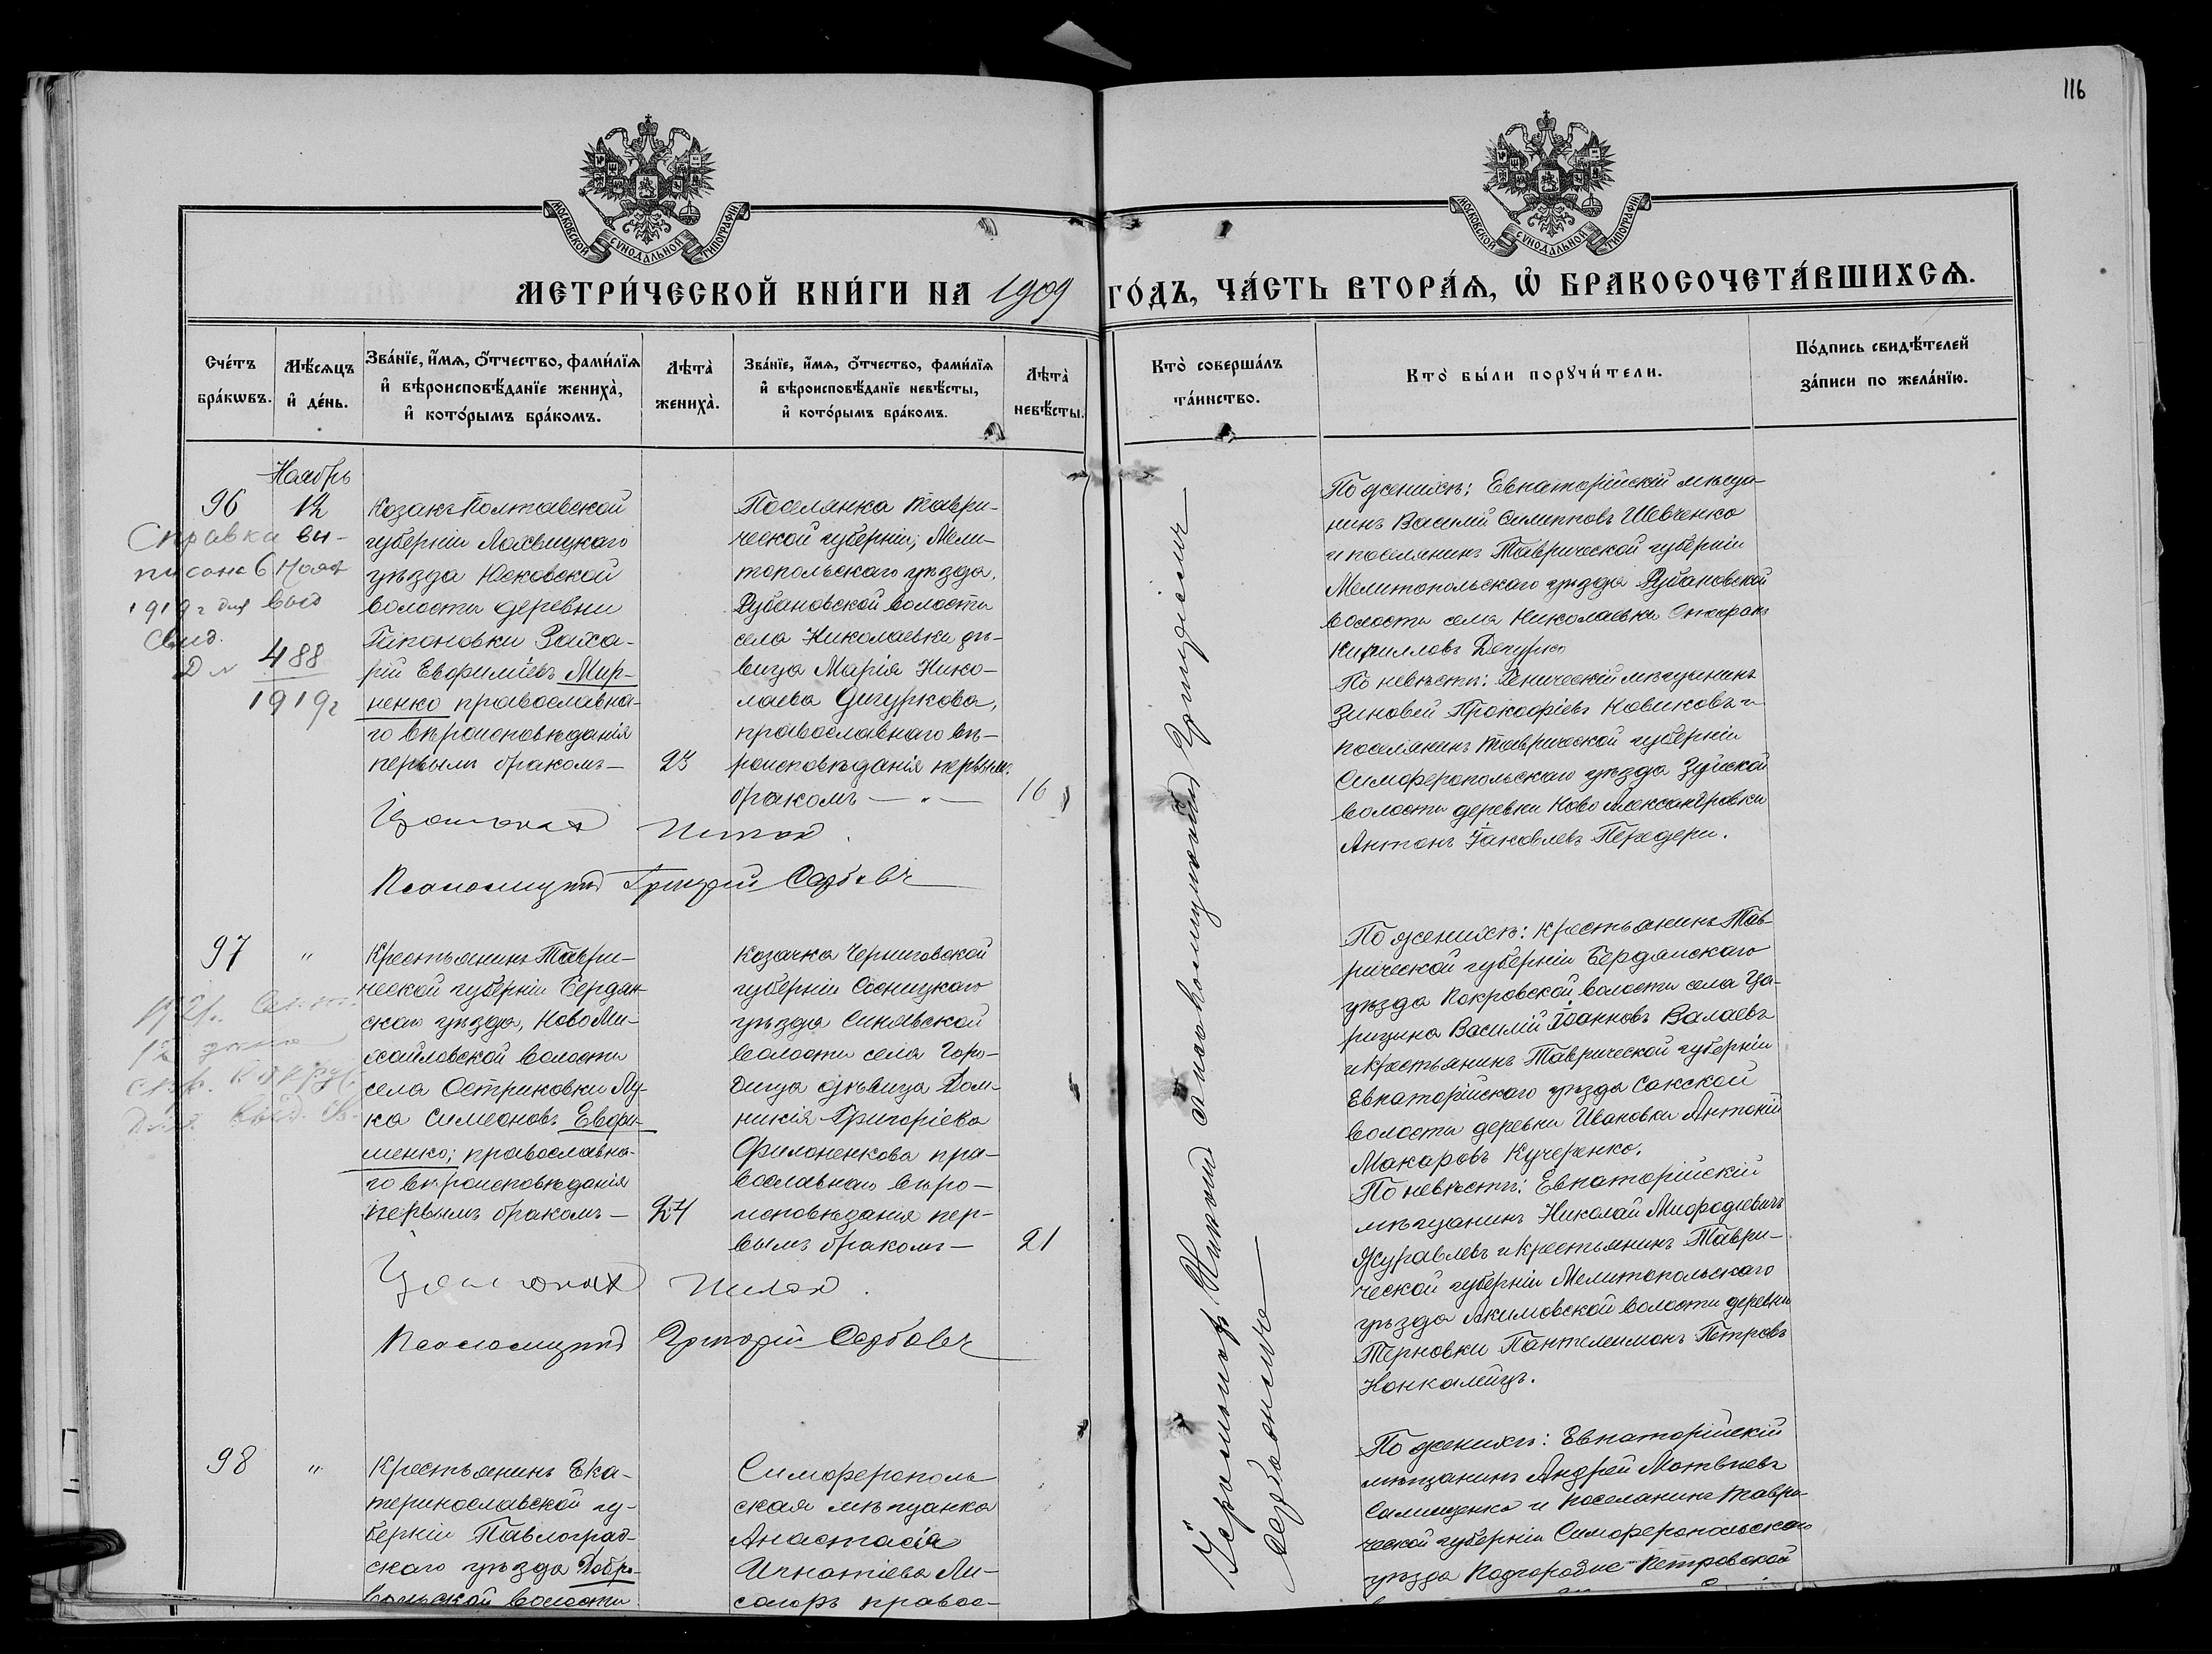 116
МОСКОВСКОЙ СУНОДАЛЬНОЙ ТИПОГРАФІИ
МОСКОВСКОЙ СУНОДАЛЬНОЙ ТИПОГРАФІИ
МЕТРИ́ЧЕСКОЙ КНИ́ГИ НА 1909 ГО́ДЪ, ЧА́СТЬ ВТОРА́Ѧ, Ѡ҆ БРАКОСОЧЕТА́ВШИХСѦ.
Сче́тъ
бра́кѡвъ.
Мѣ́сѧцъ
и҆ де́нь.
Зва́нїе, и҆́мѧ, ѻ҆́тчество, фами́лїѧ
и҆ вѣроисповѣ́данїе жениха̀,
и҆ кото́рымъ бра́комъ.
Лѣта̀
жениха̀.
Зва́нїе, и҆́мѧ, ѻ҆́тчество, фами́лїѧ
и҆ вѣроисповѣ́данїе невѣ́сты,
и҆ кото́рымъ бра́комъ.
Лѣта̀
невѣ́сты.
Кто̀ соверша́лъ
та́инство.
Кто̀ бы́ли порꙋчи́тели.
По́дпись свидѣ́телей
за́писи по жела́нїю.
Ноябрь
96
12
Справка вы-
писана 6 Нояб
1919 г для выд
Свид.
Д № 488
1919 г
Козакъ Полтавской
губерніи Лохвицкаго
уѣзда Юсковской
волости деревни
Гапоновки Заха-
рій Евфиміевъ Мир-
ненко православна-
го вѣроисповѣданія
первымъ бракомъ—
23
Поселянка Таври-
ческой губерніи, Мели-
топольскаго уѣзда,
Рубановской волости
села Николаевки дѣ-
вица Марія Нико-
лаева Дигуркова,
православнаго вѣ-
роисповѣданія первым.
бракомъ — " —
16
Псаломщикъ Григорій
По женихѣ: Евпаторійскій мѣща-
нинъ Василій Филипповъ Шевченко
и поселянинъ Таврической губерніи
Мелитопольскаго уѣзда Рубановской
волости села Николаевки
Кирилловъ
По невѣстѣ: Геническій мѣщанинъ
Зиновей Прокофіевъ Новиковъ и
поселянинъ Таврической губерніи
Симферопольскаго уѣзда Зуйской
волости деревни Ново Александровки
Антонъ Іаковлевъ Передери.
97
"
Крестьянинъ Таври-
ческой губерніи Бердян-
скаго уѣзда, Ново Ми-
хайловской волости
села Остриковки Лу-
ка Симеоновъ Евфи-
менко; православна-
го вѣроисповѣданія
первымъ бракомъ—
24
Козачка Черниговской
губерніи Сосницкаго
уѣзда Синявской
волости села Горо-
дища дѣвица Дом-
никія Григоріева
Филоненкова пра-
вославнаго вѣро-
исповѣданія пер-
вымъ бракомъ—
21
Псаломщикъ Григорій
По женихѣ: крестьянинъ Тав-
рической губерніи Бердянскаго
уѣзда Покровской волости села Ца-
рицина Василій Іоанновъ Валаевъ
и крестьянинъ Таврической губерніи
Евпаторійскаго уѣзда Сакской
волости деревни Ивановки Антоній
Макаровъ Кучеренко.
По невѣстѣ: Евпаторійскій
мѣщанинъ Николай
Журавлевъ и крестьянинъ Таври-
ческой губерніи Мелитопольскаго
уѣзда Акимовской волости деревни
Терновки Пантелеимонъ Петровъ
98
"
Крестьянинъ Ека-
теринославской гу-
берніи Павлоград-
скаго уѣзда Добро-
вольской волости
Симферополь
ская мѣщанка
Анастасія
Игнатіева Ли-
согоръ правос-
По женихѣ: Евпаторійскій
мѣщанинъ Андрей Матвѣевъ
и поселанинъ Таври-
ческой губерніи Симферопольскаго
уѣзда Подгородне Петровской